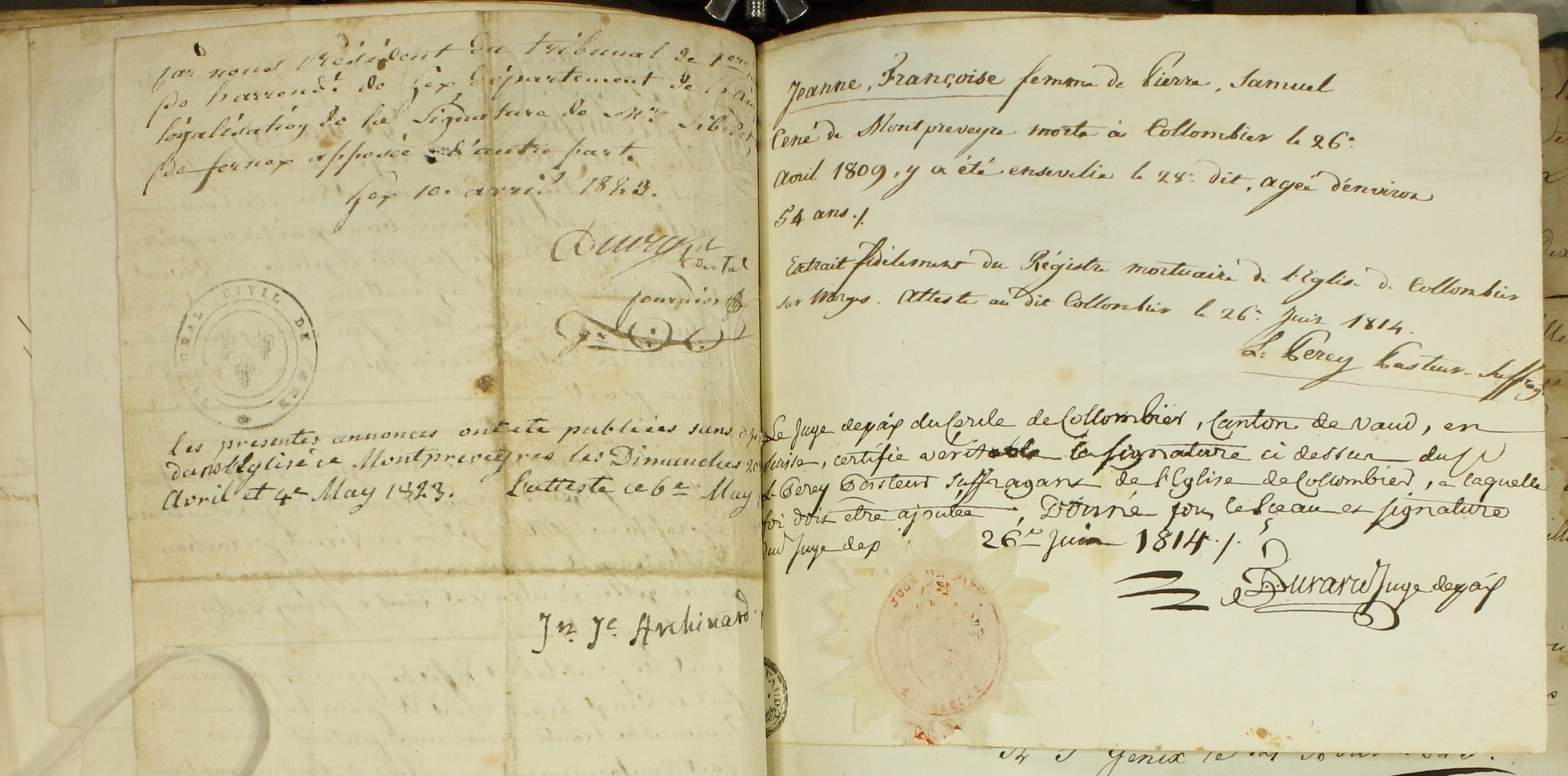 par nous Président du tribunal de 1ere
De l'arrond.t de Gex Département de l'ain
légalisation de la Signature de Mr.
De fernex apposée d'autre part.
Gex 10 avril 1823.
fournier
TRIBUNAL CIVIL DE GEX
Les presentes annonces ont ete publiées sans
dans l'Eglise de Montpreveyres les Dimanches 20
Avril et 4e May 1823. L'atteste ce 6e May
Jn. Je. Archinard
Jeanne, Françoise femme de Pierre, Samuel
Cené de Montpreveyre morte à Collombier le 26e
Avril 1809, y a été ensevelie le 28e dit, agée d'environ
54 ans./
Extrait fidèlement du Régistre mortuaire de l'Eglise de Collombier
sur Morges. Atteste au dit Collombier le 26e Juin 1814.
L: Perey Pasteur Suffrag
Le Juge depaix du Cercle de Collombier, Canton de vaud, en
Suisse, certifie veritable la signature ci dessus du
L Perey Pasteur Suffragant de l'Eglise de Collombier, a laquelle
foi doit etre ajoutée, Donné sous le Sceau et signature
dud Juge dep 26e Juin 1814./.
Durand Juge depaix
JUGE DE PAIX